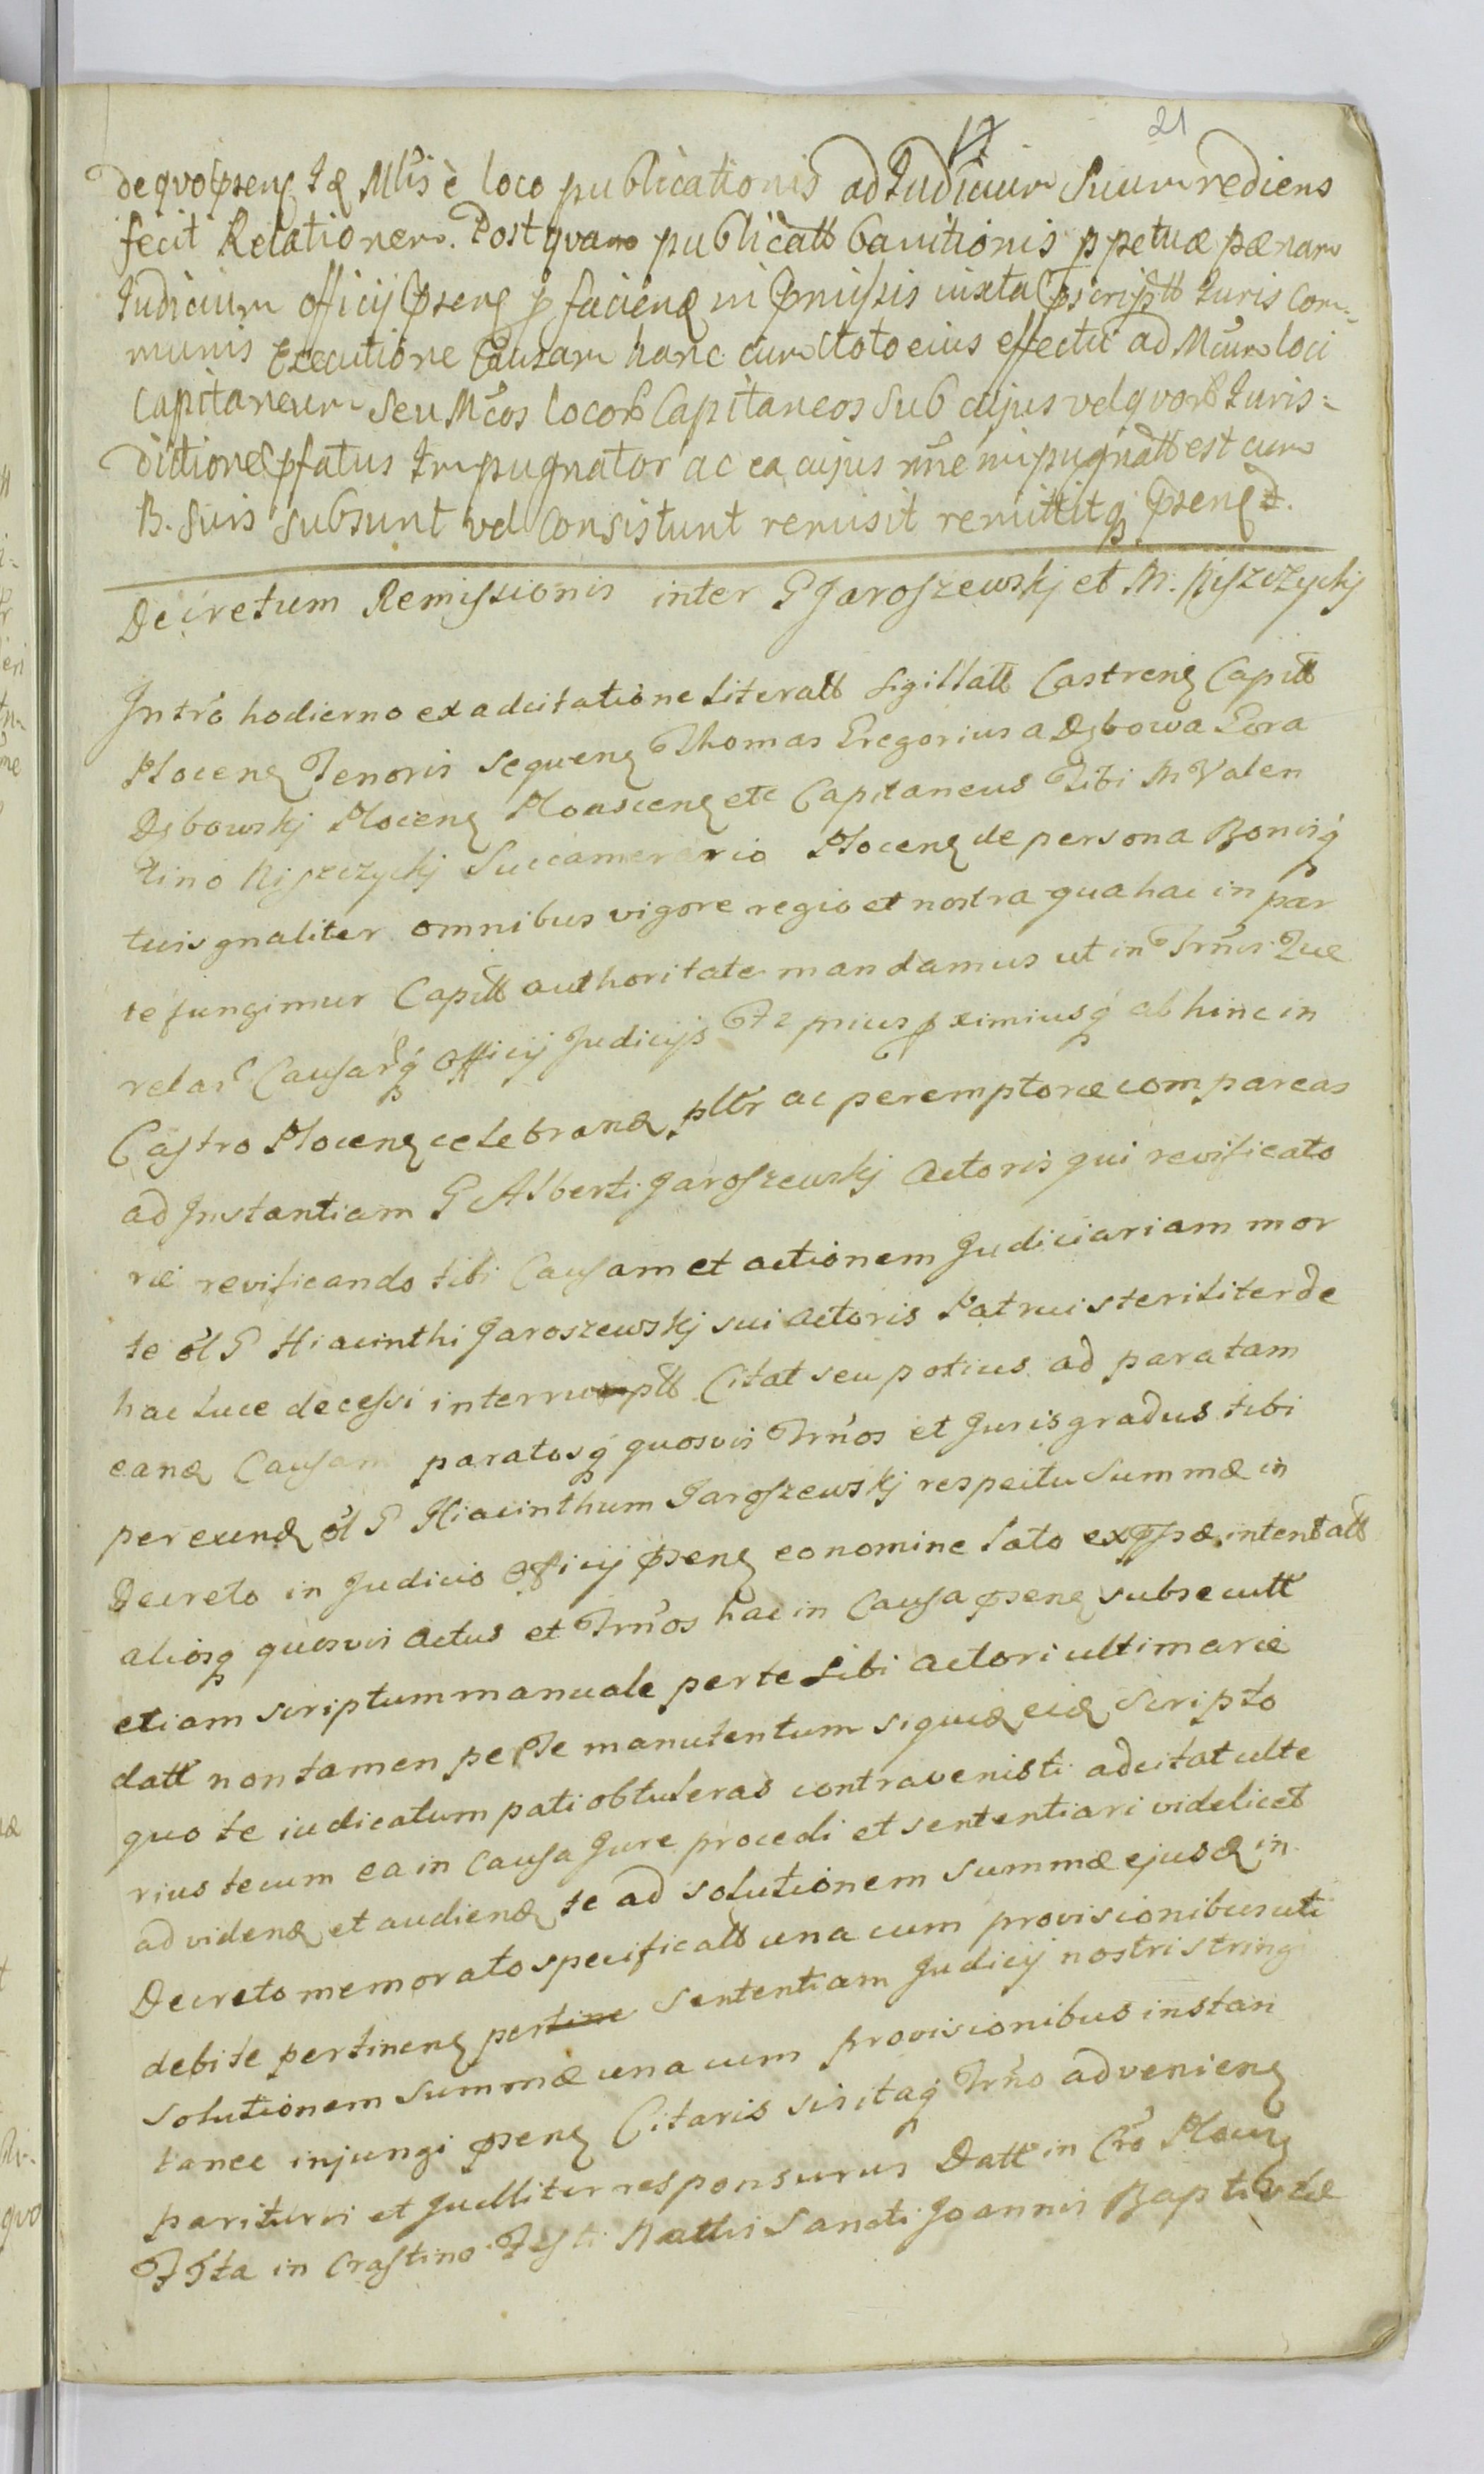 17 21
de quo pseng Id Mlis è loco publicationis ad Judicium Suum rediens
fecit Relationem. Post quam publicatt banitionis ppetuæ pænam
Judicium officij pseng p faciend in pmissis iuxta pscriptt Juris Com=
munis Executione Causam hanc cum toto eius effectu ad Mcum loci
Capitaneum Seu Mcos locorb Capitaneos Sub cujus vel quorb Juris=
dictione pfatus Impugnator ac ea cujus nne impugnatt est cum
B. Suis subsunt vel Consistunt remisit remittitq pseng d.
Decretum Remissionis inter G Jaroszewskj et M. Niszczyckj
In tro hodierno ex adcitatione Literatt Sigillatt Castreng Capitt
Ploceng Tenoris sequeng Thomas Gregorius a Dąbowa Gora
Dąbowskj Ploceng Plonsceng etc Capitaneus Tibi M Valen
tino Niszczyckj Succamerario Ploceng de persona Bonisq
tuis gnaliter omnibus vigore regio et nostra qua hac in par
te fungimur Capitt authoritate mandamus ut in Trnis Que
relar Causarq Officij Judicijs prius pximiusq ab hinc in
Castro Ploceng celebrand pltr ac peremptorie compareas
ad Instantiam G Alberti Jaroszewskj Actoris qui revificato
rie revificando tibi Causam et actionem Judiciariam mor
te ol G Hiacinthi Jaroszewskj sui Actoris Patrui steriliter de
hac luce decessi interruptt Citat seu potius ad paratam
eand Causam paratosq quosvis Trnos et Juris gradus tibi
per eund ol G Hiacinthum Jaroszewskj respectu Summæ in
Decreto in Judicio Officij pseng eo nomine lato expssæ intentatt
aliosq quosvis Actus et Trnos hac in Causa pseng subsecutt
etiam scriptum manuale per te Sibi Actori ultimarie
datt non tamen per Te manutentum siquid eid Scripto
quo te iudicatum pati obtuleras contravenisti adcitat ulte
rius tecum ea in Causa Jure procedi et sententiari videlicet
ad videnđ et audiend te ad solutionem Summæ ejusd in
Decreto memorato specificatt una cum provisionibus uti
debite pertineng per Sententiam Judicij nostri stringi
solutionem summæ una cum provisionibus instan
tanee injungi pseng Citaris sis itaq Trno advenieng
pariturus et Juditter responsurus Datt in Cro Ploceng
Fta in Crastino Festi Nattis Sancti Joannis Baptistæ